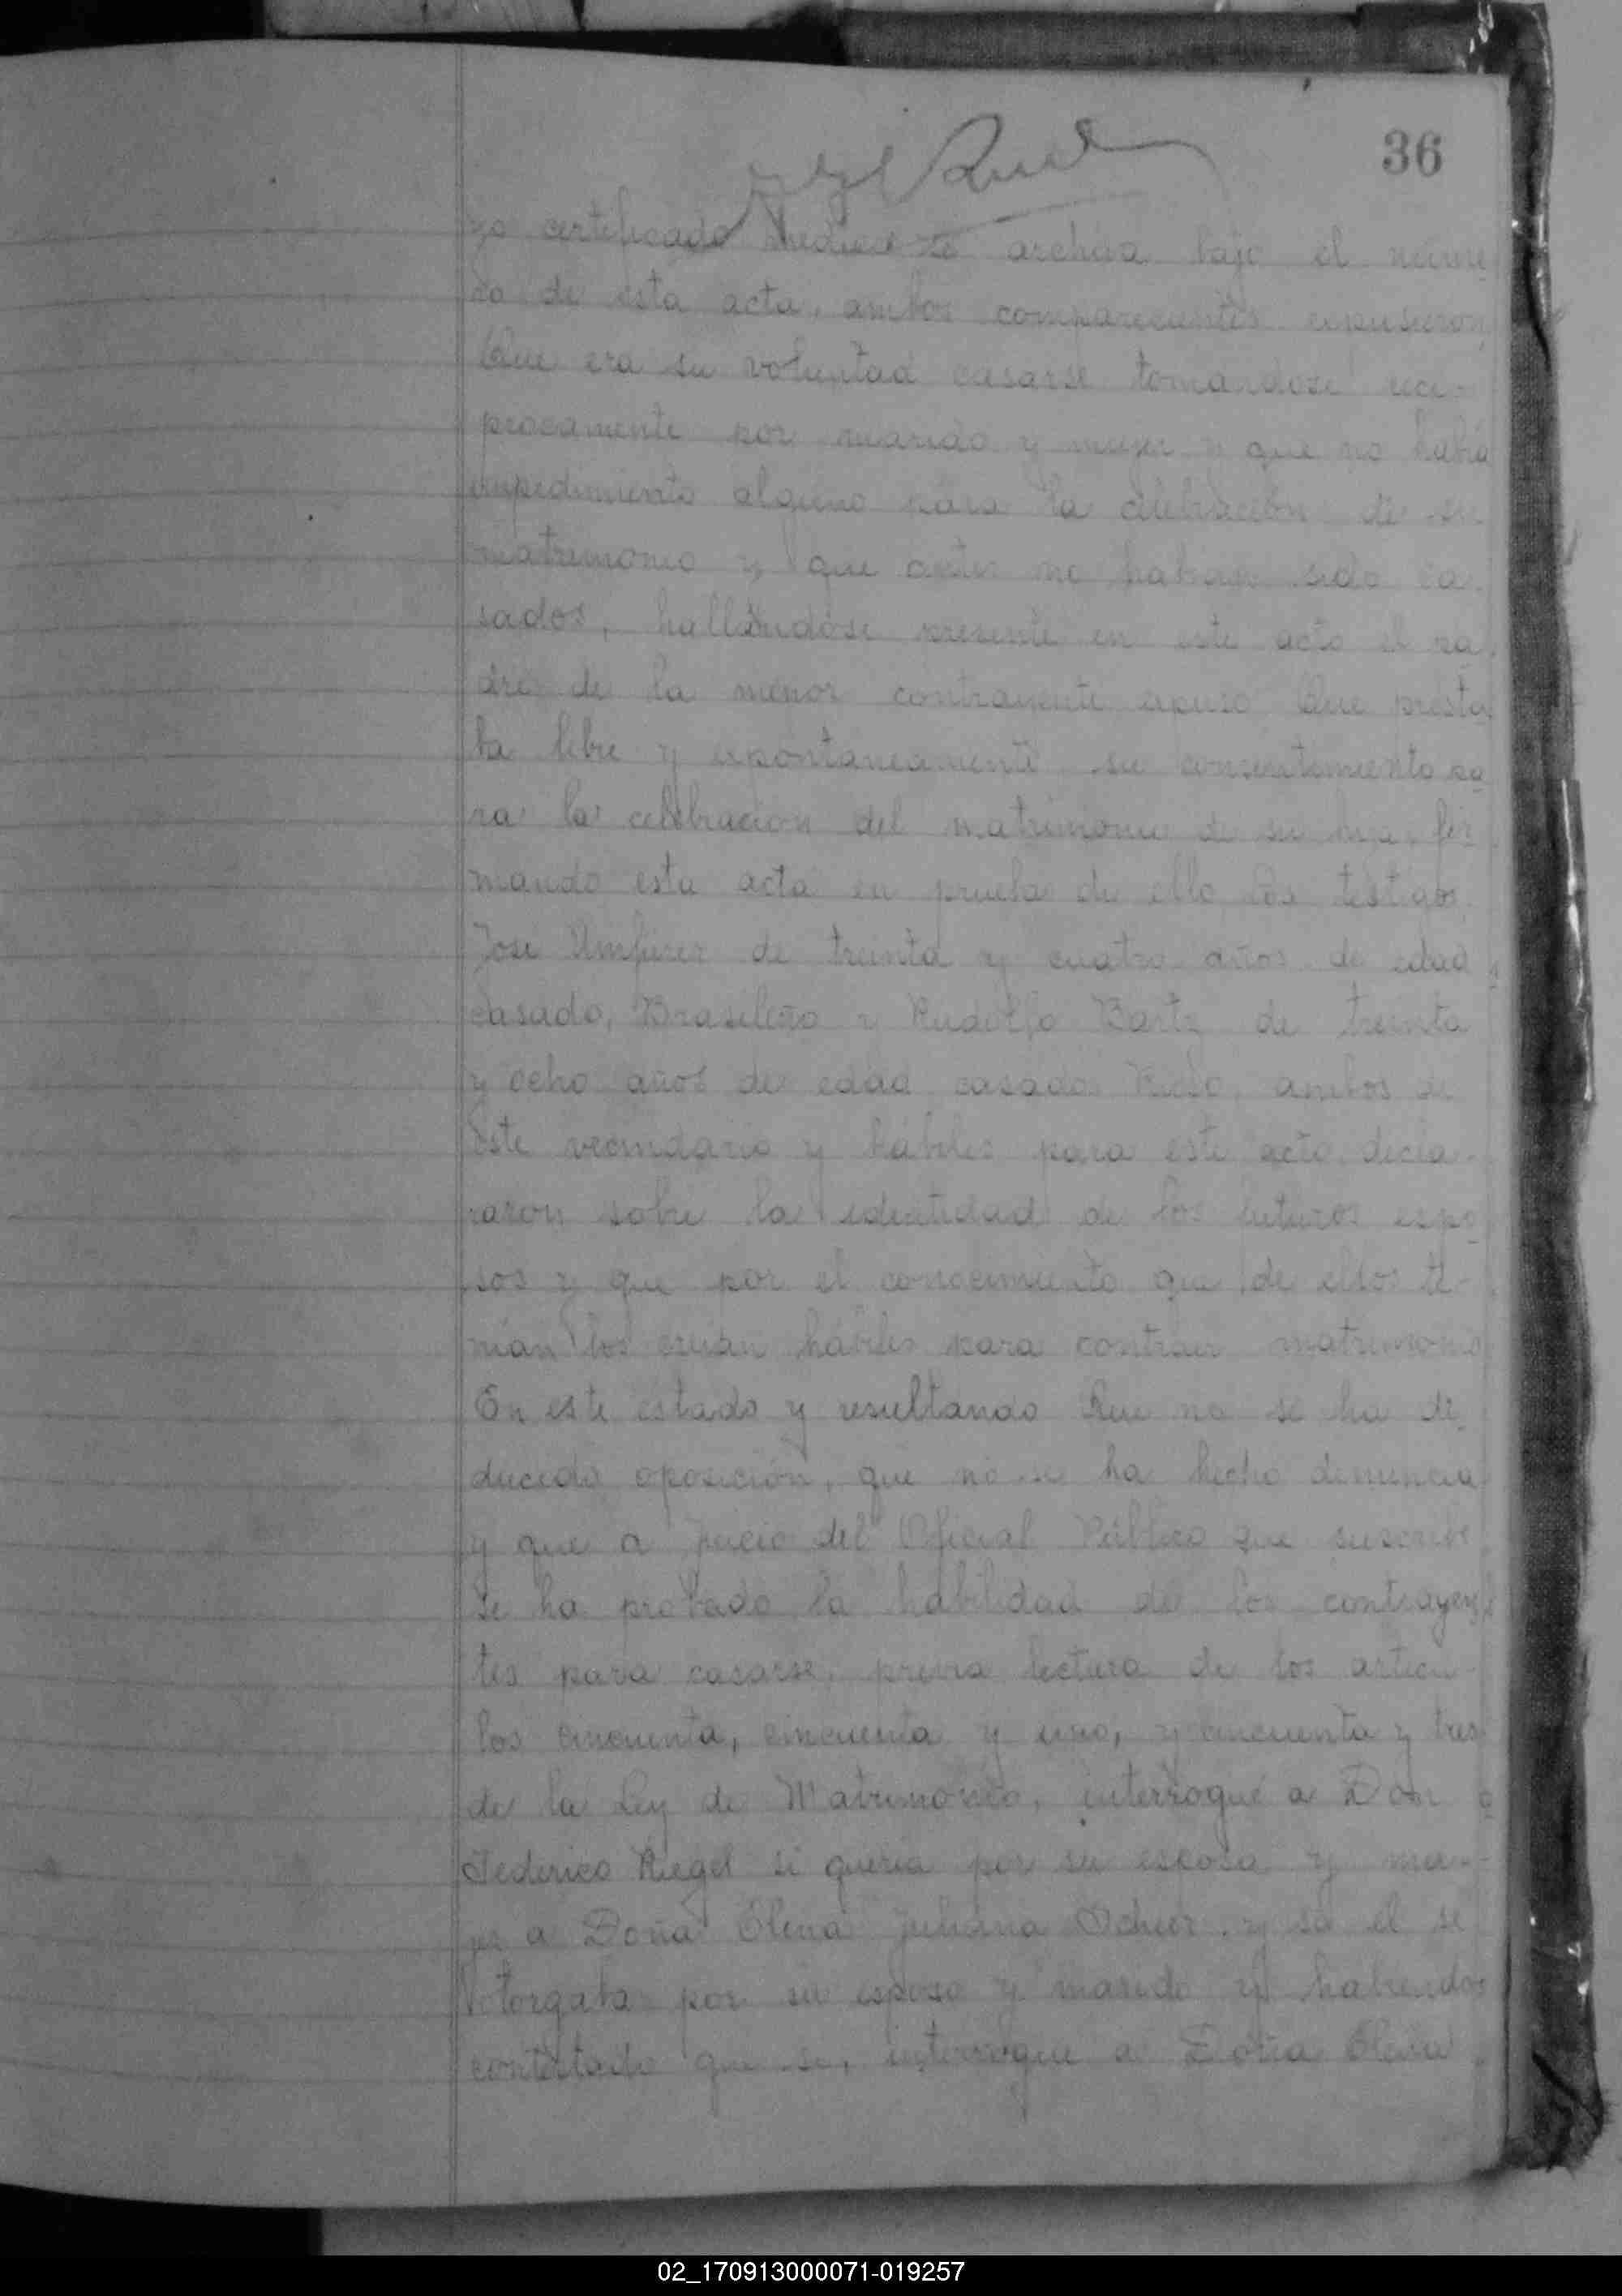 36
yo certificado medico se archiva bajo el núme
ro de esta acta, ambos comparecientes expusieron
Que era su voluntad casarse tomandose reci-
procamente por marido y mujer y que no había
impedimento alguno para la celebración de su
matrimonio y que antes no habian sido ca
sados, hallándose presente en este acto el pa
dre de la menor contrayente expuso Que presta
ba libre y expontaneamente su consentimiento pa
ra la celebración del matrimonio de su hija, fir
mando esta acta en prueba de ello Los testigos
José de treinta y cuatro años de edad
casado, Brasileño y Rudolfo Bartz de treinta
y ocho años de edad casado Ruso, ambos de
este vecindario y hábiles para este acto, decla-
raron sobre la identidad de los futuros espo
sos y que por el conocimiento que de ellos te-
nían los creían hábiles para contraer matrimonio
En este estado y resultando Que no se ha de
ducido oposición, que no se ha hecho denuncia
y que a juicio del Oficial Público que suscribe
se ha probado la habilidad de los contrayen
tes para casarse, previa lectura de los artícu-
los cincuenta, cincuenta y uno, y cincuenta y tres
de la Ley de Matrimonio, interrogué a Don
Federico Riegel si quería por su esposa y mu-
jer a Doña Elena Juliana y si el se
otorgaba por su esposo y marido y habiendo
contestado que si, interrogue a Doña Elena
02_170913000071-019257